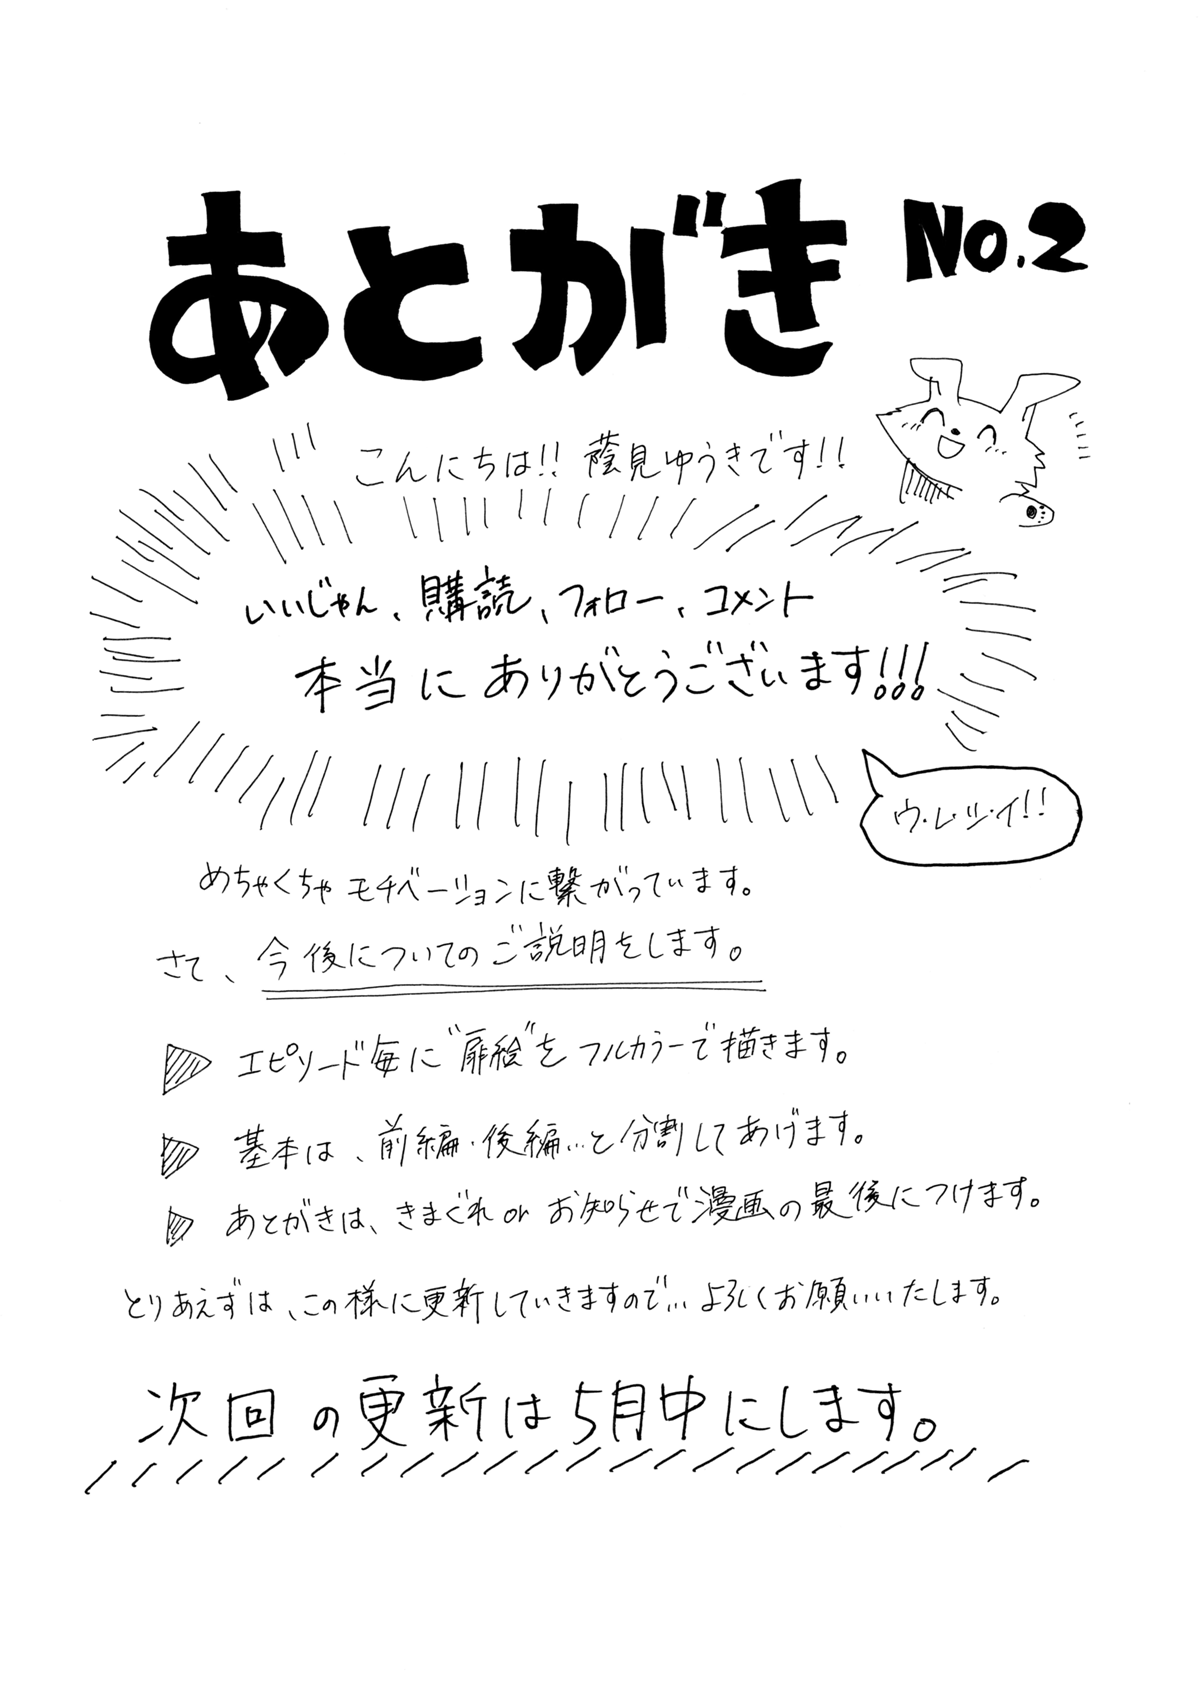 あとがき No.2
こんにちは!! 蔭見ゆうきです!!
いいじゃん、購読、フォロー、コメント
本当にありがとうございます!!!
ウ・レ・シ・イ!!
めちゃくちゃモチベーションに繋がっています。
さて、今後についてのご説明をします。
エピソード毎に"扉絵"をフルカラーで描きます。
基本は、前編・後編…と分割してあげます。
あとがきは、きまぐれ or お知らせで漫画の最後につけます。
とりあえずは、この様に更新していきますので… よろしくお願いいたします。
次回の更新は5月中にします。